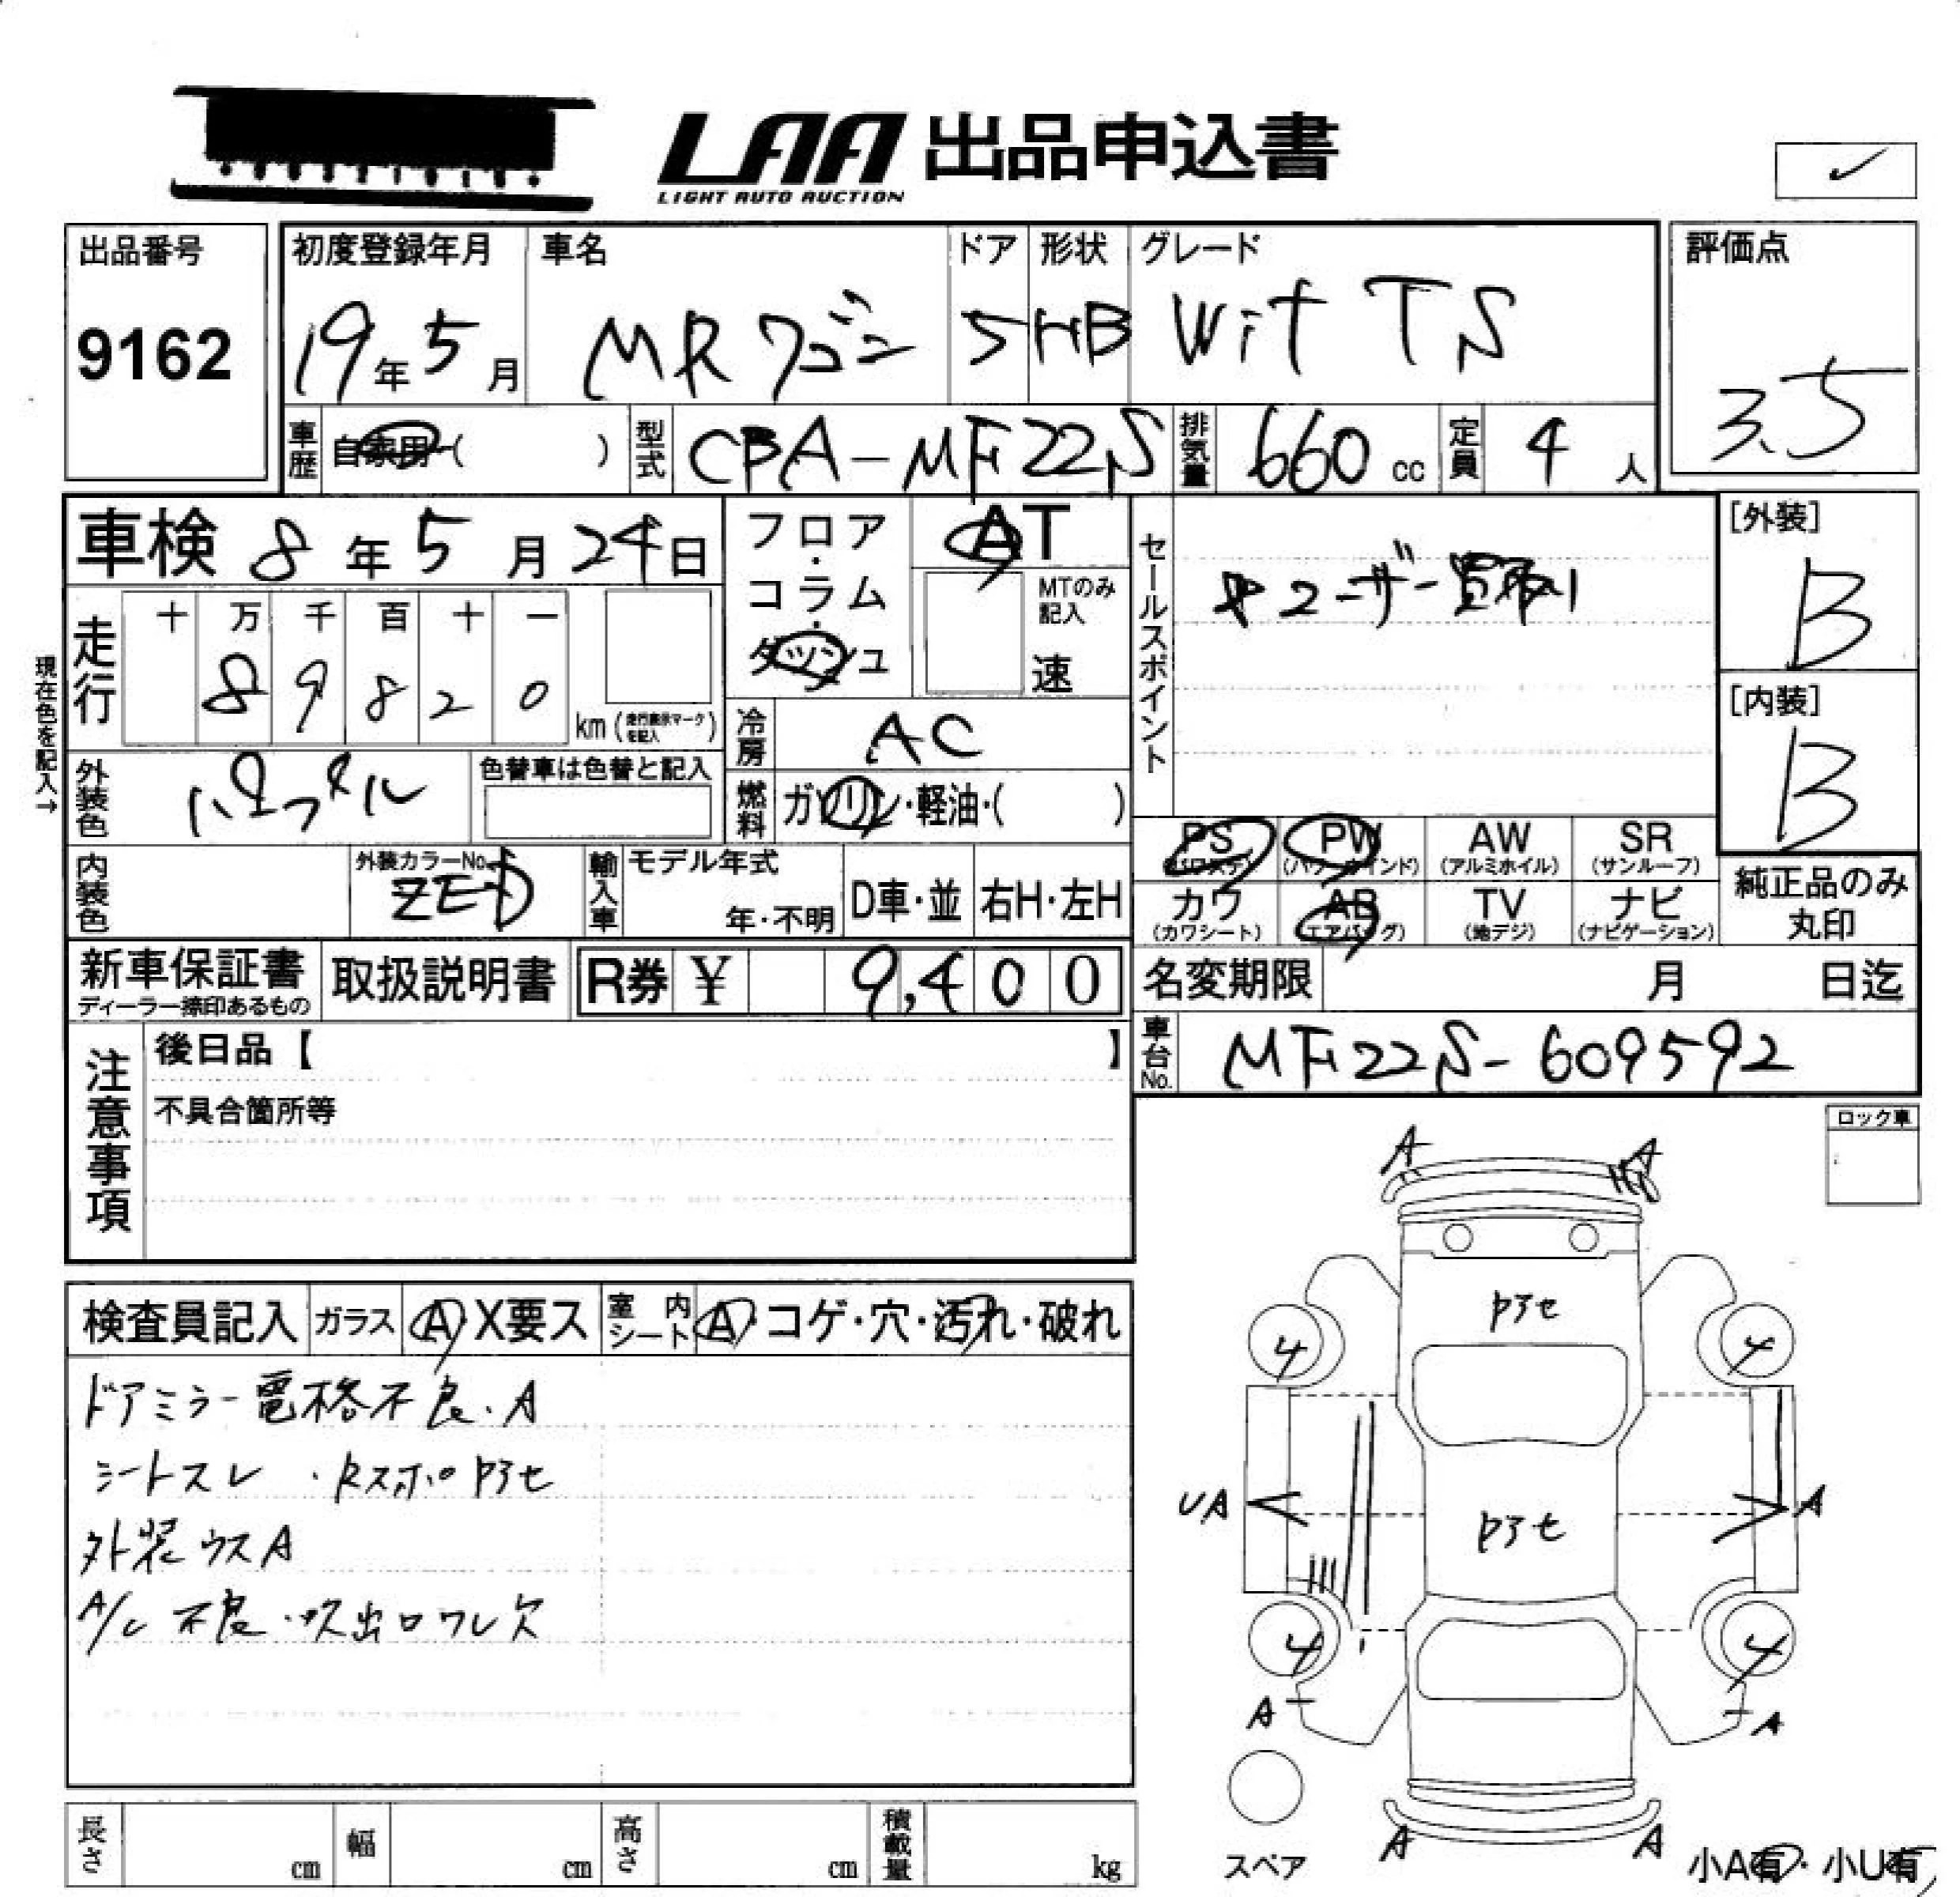 LAA 出品申込書
LIGHT AUTO AUCTION
出品番号
9162
初度登録年月
19年5月
車名
MRワゴン
ドア
5
形状
HB
グレード
Wit TS
評価点
3.5
車歴 自家用・( )
型式 CBA-MF22S
排気量 660 cc
定員 4 人
車検 8年5月24日
フロア・コラム・ダッシュ
AT
MTのみ記入
速
セールスポイント
ユーザー買取り
[外装]
B
[内装]
B
現在色を記入→
走行
十 万 千 百 十 一
8 9 8 2 0
km (走行表示マークを記入)
冷房 AC
外装色 パープル
色替車は色替と記入
燃料 ガソリン・軽油・( )
内装色
外装カラーNo.
ZED
輸入車
モデル年式
年・不明
D車・並
右H・左H
PS (パワステ)
PW (パワーウインド)
AW (アルミホイル)
SR (サンルーフ)
カワ (カワシート)
AB (エアバッグ)
TV (地デジ)
ナビ (ナビゲーション)
純正品のみ丸印
新車保証書
ディーラー捺印あるもの
取扱説明書
R券 ¥ 9,400
名変期限 月 日迄
車台No. MF22S-609592
注意事項
後日品【 】
不具合箇所等
ロック車
検査員記入
ガラス A X要ス
室内シート A コゲ・穴・汚れ・破れ
ドアミラー電格不良・A
シートスレ ・Rスポ アセ
外装ウスA
A/C 不良・吹出口ワレ欠
A A
アセ
4 4
UA A
アセ
4 4
A A
A A
スペア
小A有・小U有
長さ cm
幅 cm
高さ cm
積載量 kg